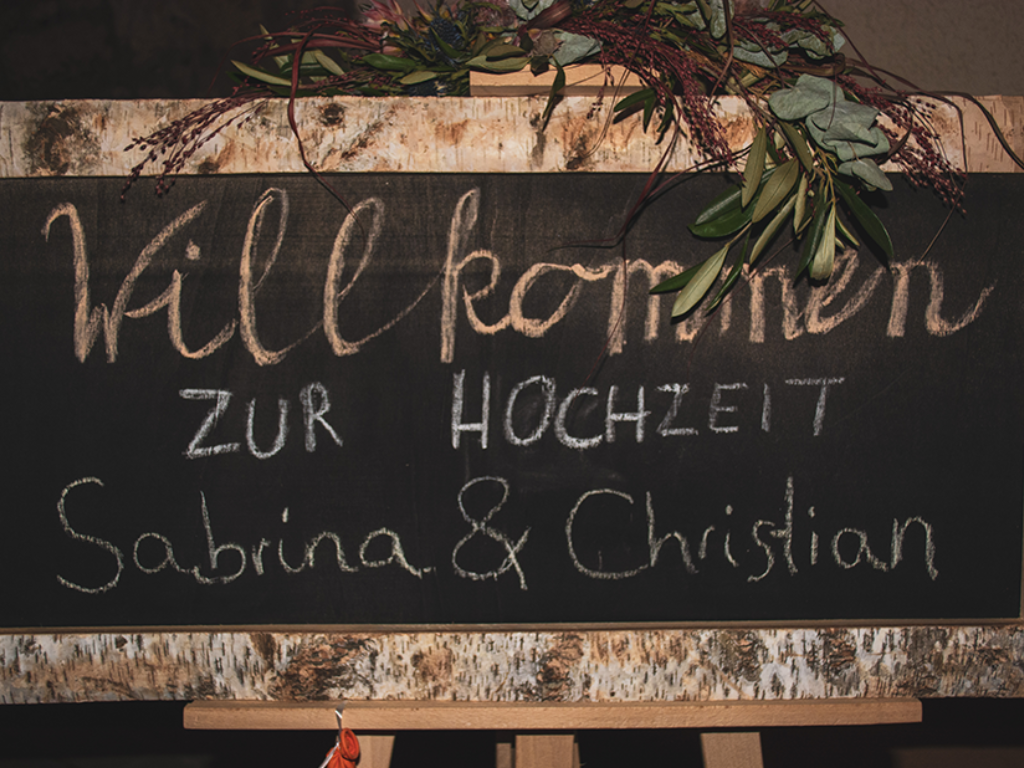 Willkommen
ZUR HOCHZEIT
Sabrina & Christian